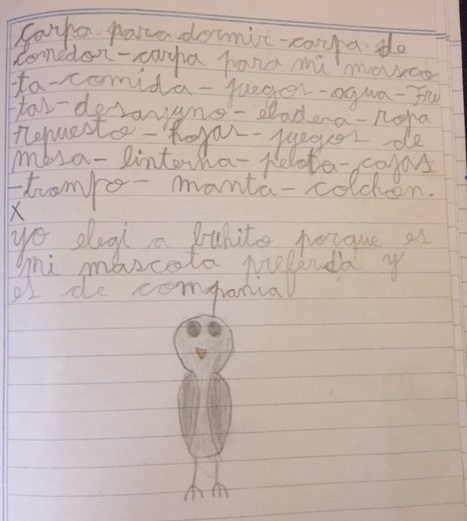 carpa para dormir-carpa de
comedor-carpa para mi masco
ta-comida-juegos-agua-Fru
tas-desayuno-eladera-ropa
repuesto-hojas-juegos de
mesa-linterna-pelota-cajas
-trompo-manta-colchón.
X
yo elegí a buhito porque es
mi mascota preferida y
es de compania